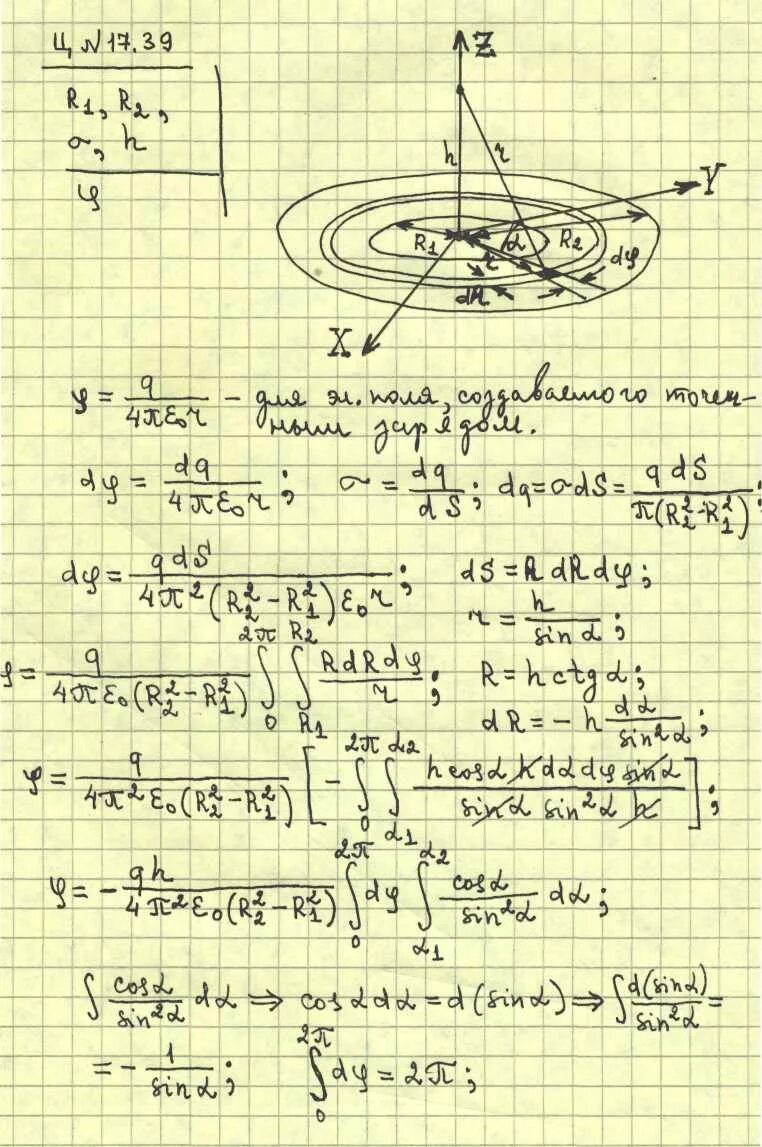 Ц №17.39
R₁, R₂,
σ, h
φ
Z
h
r
Y
R₁
α
R₂
r
dφ
dR
X
φ = q/(4πε₀r) – для эл. поля, создаваемого точеч-
ным зарядом.
dφ = dq/(4πε₀r); σ = dq/dS; dq = σdS = q dS/(π(R₂²-R₁²));
dφ = q dS/(4π²(R₂²-R₁²)ε₀r); dS = R dR dφ;
r = h/sinα;
φ = q/(4πε₀(R₂²-R₁²)) ∫₀^2π ∫_R₁^R₂ R dR dφ/r; R = h ctg α;
dR = -h dα/sin²α;
φ = q/(4π²ε₀(R₂²-R₁²)) [-∫₀^2π ∫_α₁^α₂ h cosα h dα dφ sinα/(sinα sin²α h)];
φ = -qh/(4π²ε₀(R₂²-R₁²)) ∫₀^2π dφ ∫_α₁^α₂ cosα/sin²α dα;
∫ cosα/sin²α dα ⇒ cosα dα = d(sinα) ⇒ ∫ d(sinα)/sin²α =
= -1/sinα; ∫₀^2π dφ = 2π;